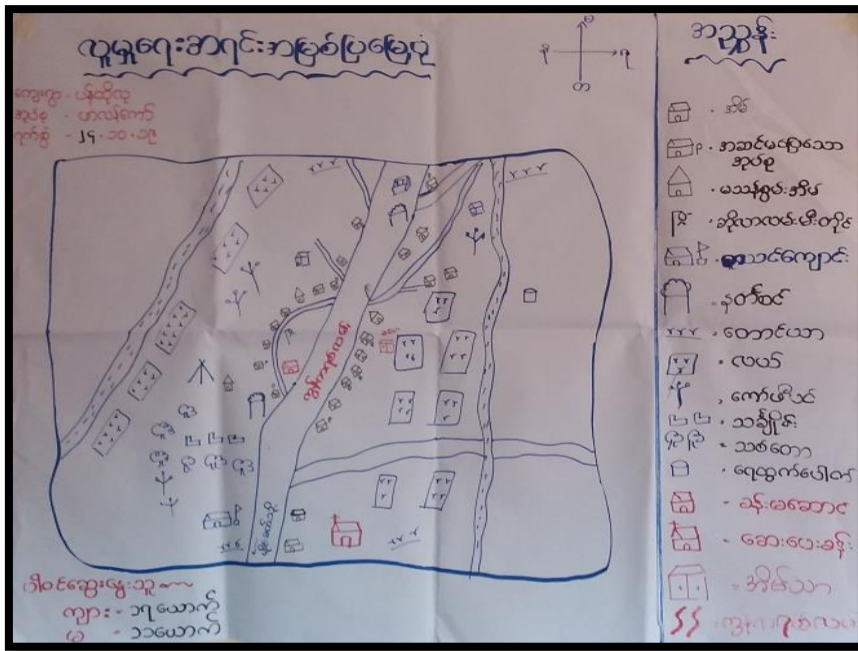 လူမှုရေးဆာရင်းအမြစ်ပြမြေပုံ
ကျေးရွာ - ပန်ထိုလု
အုပ်စု -
ရက်စွဲ - ၂၄.၁၀.၁၉
အညွှန်း
- အိမ်
- အဆင်မပြေသော
အုပ်စု
- မသန်စွမ်းအိမ်
- ဆိုလာလမ်းမီးတိုင်
- စာသင်ကျောင်း
- နတ်စင်
- တောင်ယာ
- လယ်
- ကော်ဖီပင်
- သင်္ချိုင်း
- သစ်တော
- ရေထွက်ပေါက်
- ခန်းမဆောင်
- ဆေးပေးခန်း
- အိမ်သာ
ပါဝင်ဆွေးနွေးသူ
ကျား - ၁၇ ယောက်
မ - ၁၁ယောက်